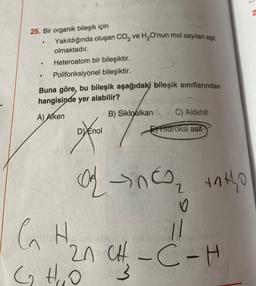 25. Bir organik bileşik için
• Yakıldığında oluşan CO₂ ve H₂O'nun mol sayıları eşit
olmaktadır.
• Heteroatom bir bileşiktir.
• Polifonksiyonel bileşiktir.
Buna göre, bu bileşik aşağıdaki bileşik sınıflarından
hangisinde yer alabilir?
A) Alken B) Sikloalkan C) Aldehit
D) Enol E) Hidroksi asit
O₂ → nCO₂ + nH₂O
O
||
CnH2n CH3 - C - H
C2H4O